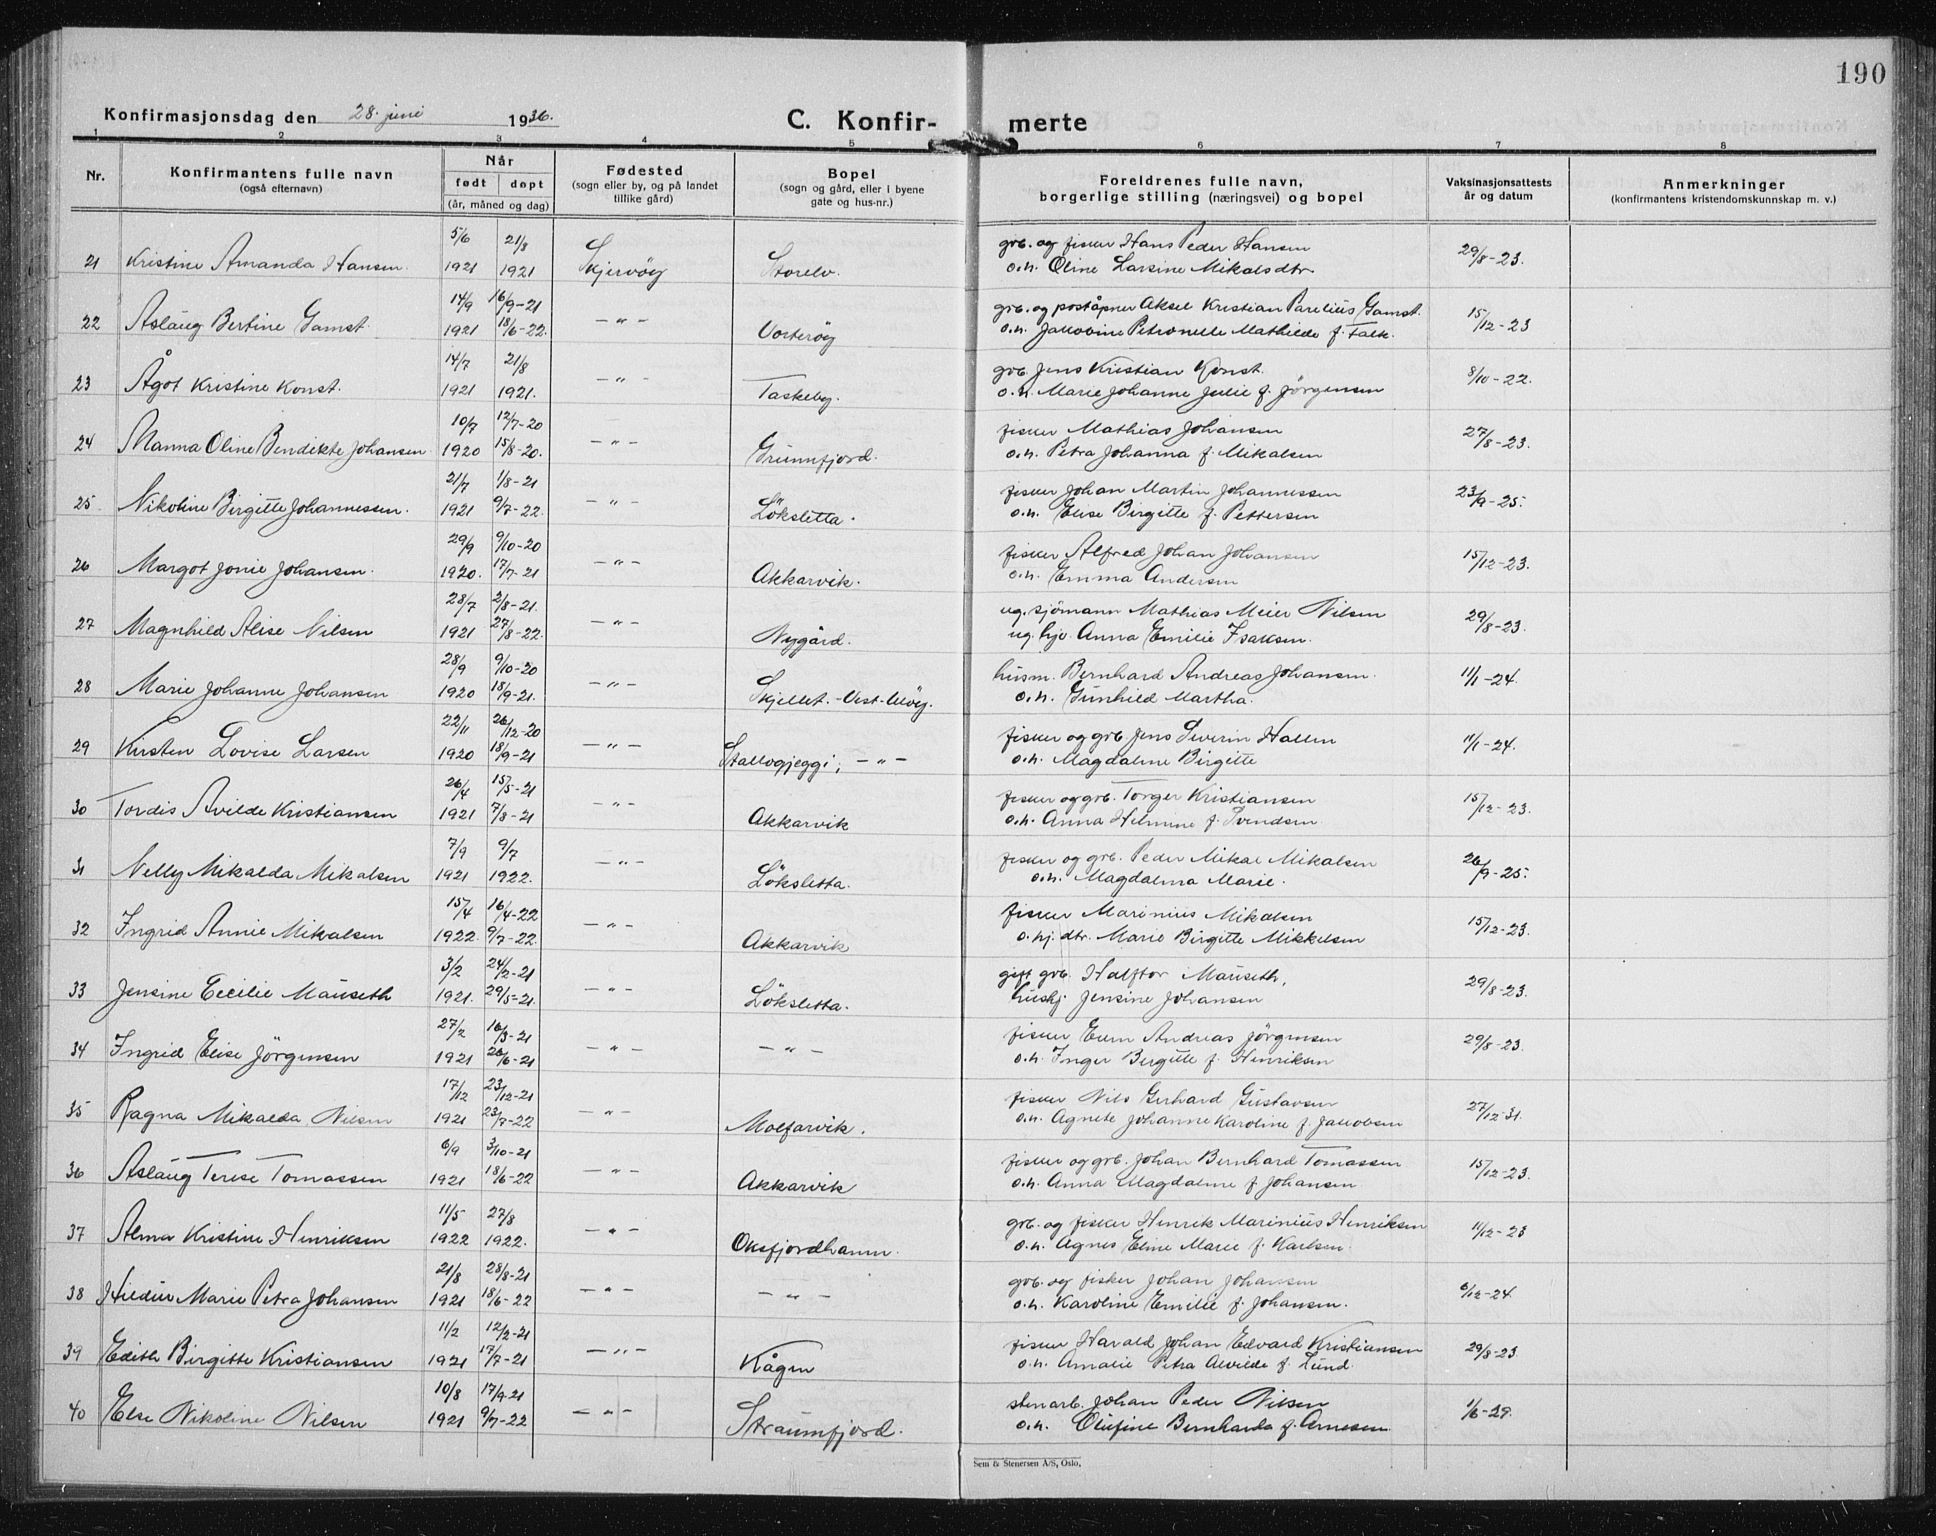 190
Konfirmasjonsdag den 28. juni 1936.
C. Konfirmerte
1 2 3 4 5 6 7 8
Nr. Konfirmantens fulle navn (også efternavn) Når født døpt (år, måned og dag) Fødested (sogn eller by, og på landet tillike gård) Bopel (sogn og gård, eller i byene gate og hus-nr.) Foreldrenes fulle navn, borgerlige stilling (næringsvei) og bopel Vaksinasjonsattests år og datum Anmerkninger (konfirmantens kristendomskunnskap m. v.)
5/6 21/8 grb. og fisker Hans Peder Hansen
21 Kristine Amanda Hansen. 1921 1921 Skjervöy Storelv. o.h. Oline Larsine Mikalsdtr. 29/8-23.
14/9 16/9-21 grb. og poståpner Aksel Kristian Parelius Gamst.
22 Aslaug Bertine Gamst. 1921 18/6-22. —"— Vorteröy o.h. Jakobine Petronelle Mathilde f. Falk. 15/12-23
14/7 21/8 grb. Jens Kristian Konst.
23 Ågot Kristine Konst. 1921 1921. —"— Taskeby. o.h. Marie Johanne Julie f. Jörgensen 8/10-22.
10/7 12/7-20 fisker Mathias Johansen
24 Manna Oline Bendikte Johansen 1920 15/8-20. —"— Grunnfjord. o.h. Petra Johanna f. Mikalsen 27/8-23.
21/7 1/8-21 fisker Johan Martin Johannessen
25. Nikoline Birgitte Johannessen. 1921 9/7-22. —"— Löksletta. o.h. Elise Birgitte f. Pettersen 23/9-25.
29/9 9/10-20 fisker Alfred Johan Johansen
26 Margot Jonie Johansen. 1920. 17/7-21 —"— Akkarvik. o.h. Emma Andersen 15/12-23.
28/7 2/8-21. ug. sjömann Mathias Meier Nilsen
27 Magnhild Alise Nilsen 1921 27/8-22. —"— Nygård. ug. hjv. Anna Emilie Isaksen. 29/8-23.
28/9 9/10-20 husm. Bernhard Andreas Johansen.
28 Marie Johanne Johansen 1920 18/9-21. —"— Skjellet.-Vest-Ulöy. o.h. Gunhild Martha. 11/1-24.
22/11 26/12-20 fisker og grb. Jens Severin Hallen
29 Kirsten Lovise Larsen 1920 18/9-21 —"— Stallogjeggi, —"— o.h. Magdalene Birgitte 11/1-24.
26/4 15/5-21 fisker og grb. Torger Kristiansen
30 Tordis Avilde Kristiansen 1921 7/8-21 —"— Akkarvik o.h. Anna Helmine f. Svendsen. 15/12-23.
7/9 9/7 fisker og grb. Peder Mikal Mikalsen
31 Nelly Mikalda Mikalsen 1921 1922. —"— Löksletta. o.h. Magdalena Marie. 26/9-25.
15/4 16/4-22 fisker Marinius Mikalsen
32 Ingrid Annie Mikalsen 1922. 9/7-22. —"— Akkarvik o. hj. dtr. Marie Birgitte Mikkelsen 15/12-23.
3/2 24/2-21 gift grb. Halftor Mauseth,
33 Jensine Cecilie Mauseth 1921. 29/5-21. —"— Löksletta. hushj. Jensine Johansen 29/8-23.
27/2 16/3-21 fisker Euen Andreas Jörgensen
34 Ingrid Elise Jörgensen 1921 26/6-21 —"— —"— o.h. Inger Bergitte f. Henriksen 29/8-23.
17/12 23/12-21 fisker Nils Gerhard Gustavsen
35 Ragna Mikalda Nilsen 1921 23/7-22 —"— Molfarvik. o.h. Agnete Johanne Karoline f. Jakobsen 27/12-31.
6/9 3/10-21 fisker og grb. Johan Bernhard Tomassen
36 Aslaug Terese Tomassen 1921 18/6-22 —"— Akkarvik o.h. Anna Magdalene f. Johansen 15/12-23.
11/5 27/8 grb. og fisker Henrik Marinius Henriksen
37 Alma Kristine Henriksen 1922 1922. —"— Oksfjordhamn. o.h. Agnes Eline Marie f. Karlsen. 11/12-23
21/8 28/8-21 grb. og fisker Johan Johansen
38 Hildur Marie Petra Johansen 1921 18/6-22 —"— —"— o.h. Karoline Emilie f. Johansen. 6/12-24.
11/2 12/2-21 fisker Harald Johan Edvard Kristiansen
39 Edith Birgitte Kristiansen 1921 17/7-21 —"— Kågen o.h. Amalie Petra Alvilde f. Lund 29/8-23
10/8 17/9-21 stenarb. Johan Peder Nilsen
40 Else Nikoline Nilsen 1921 9/7-22 —"— Straumfjord. o.h. Olufine Bernharda f. Arnesen. 1/6-29.
Sem & Stenersen A/S, Oslo.